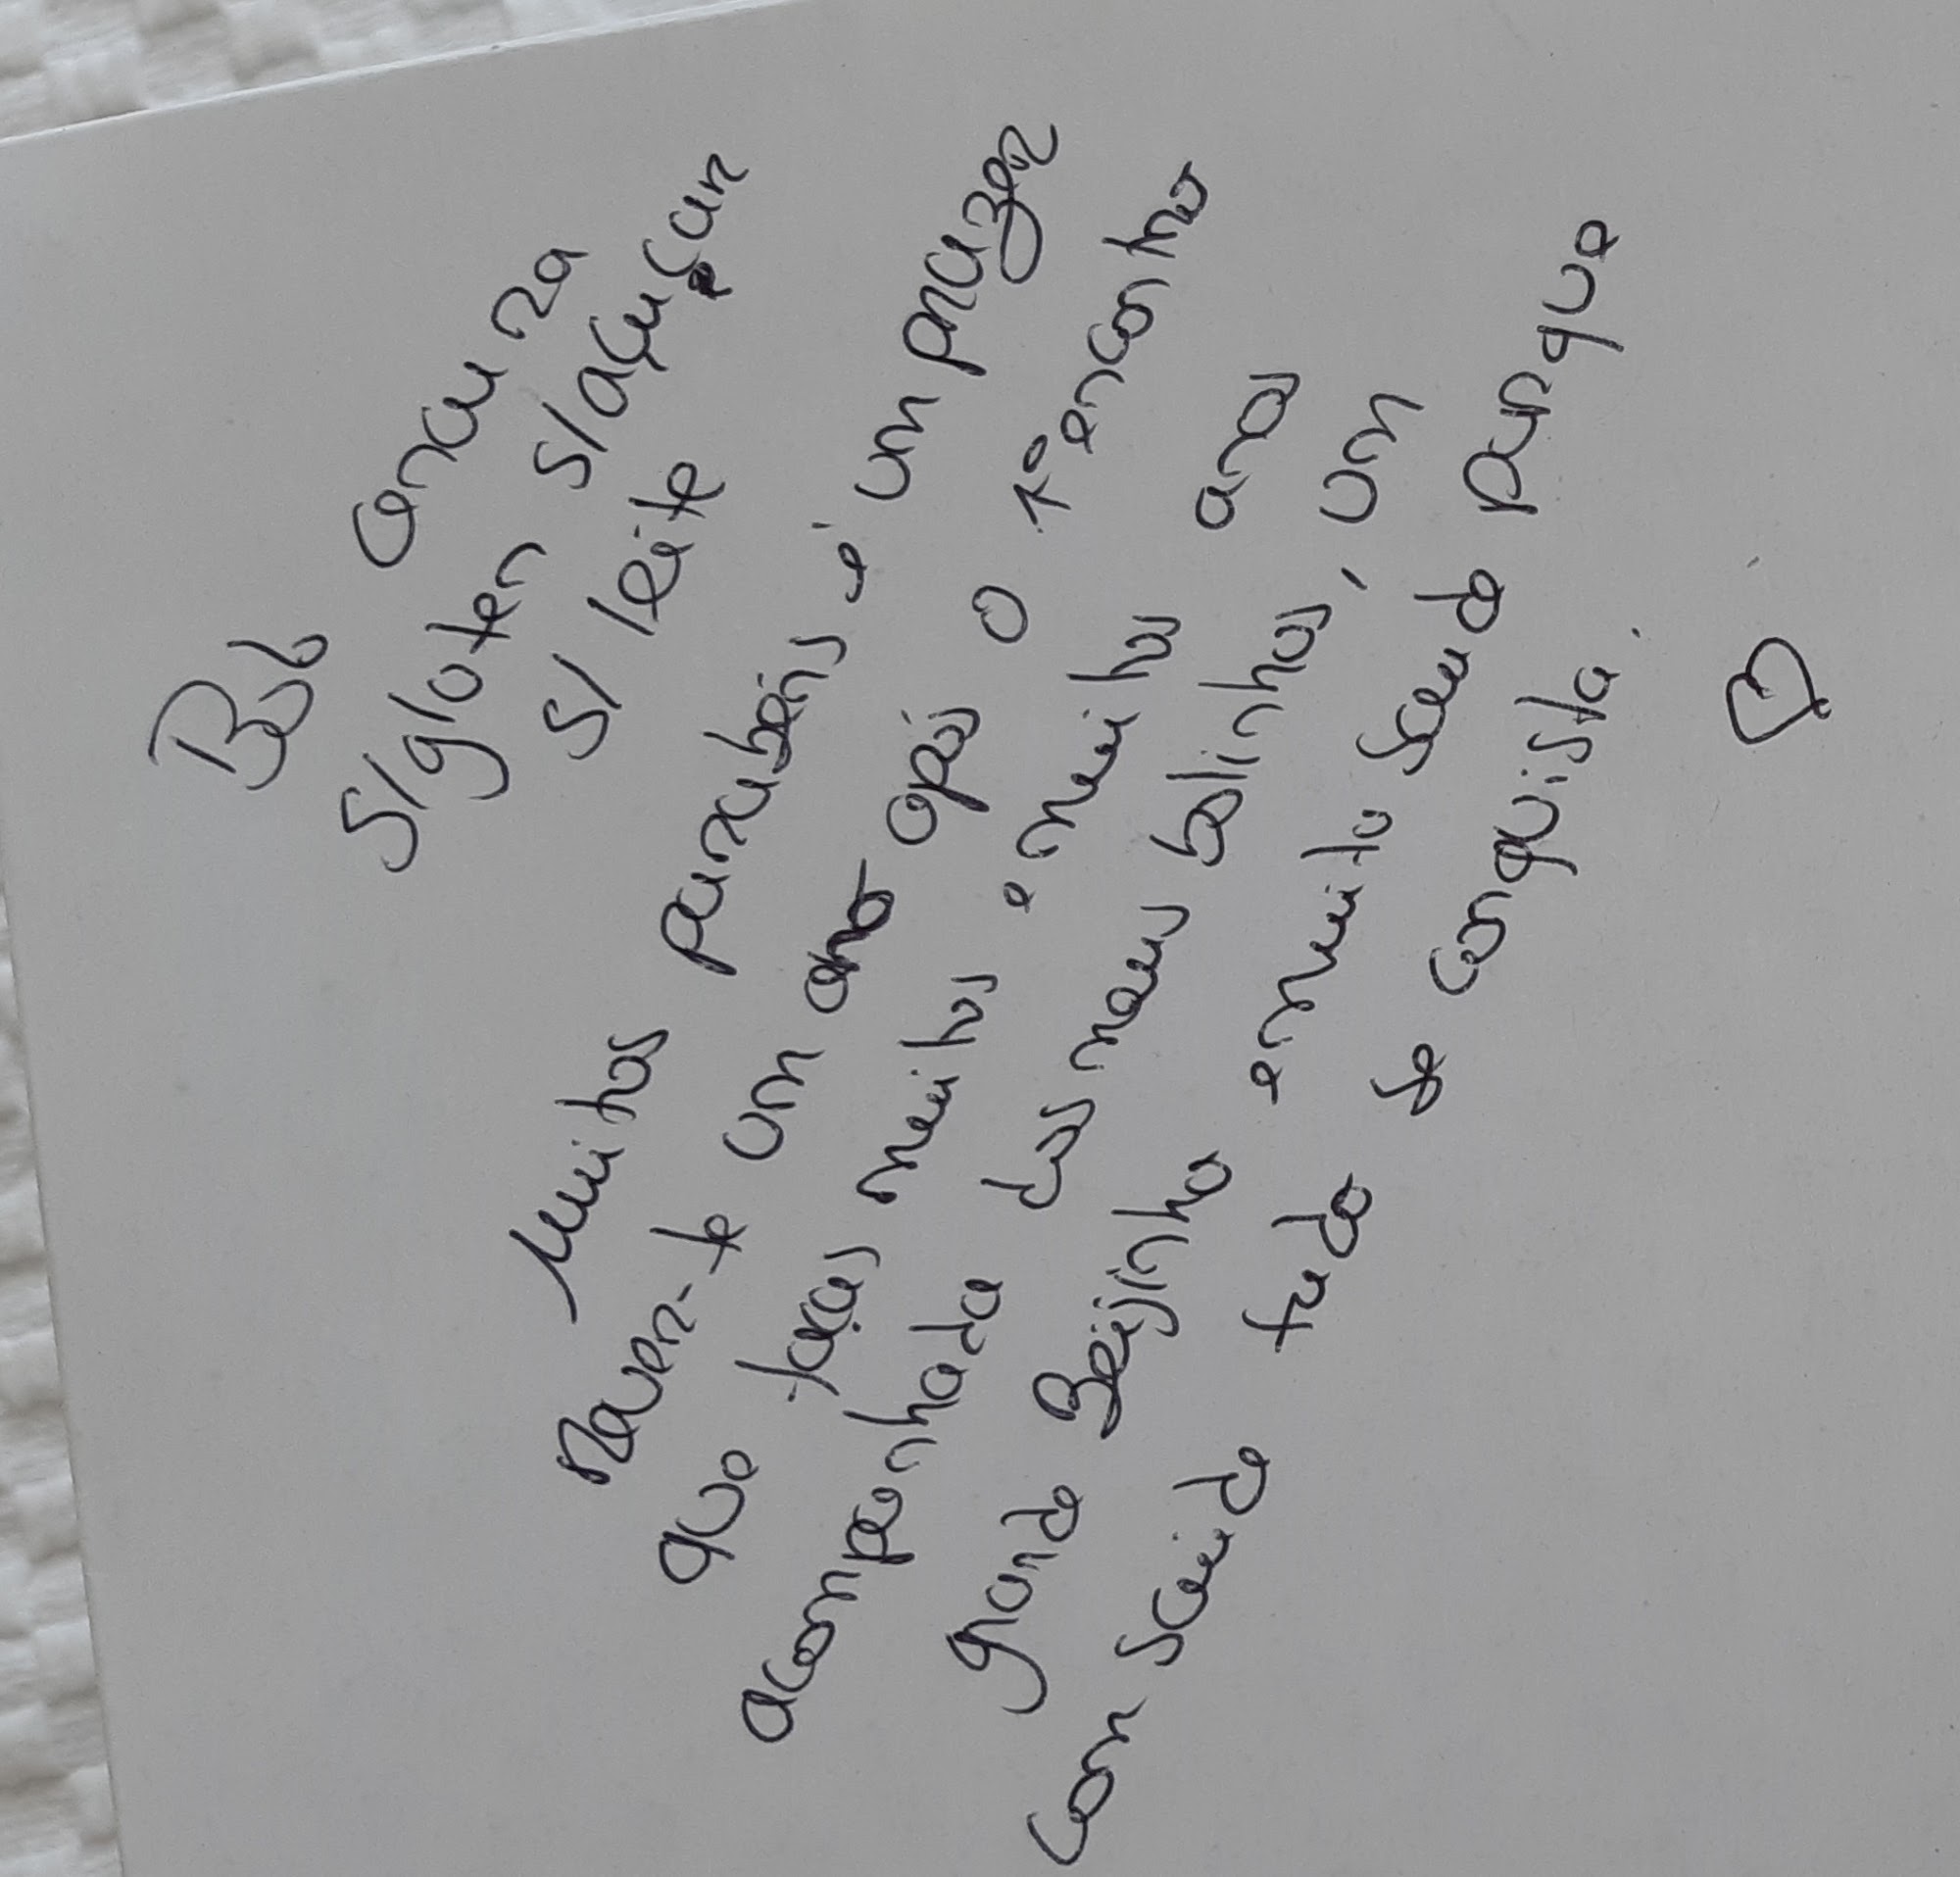 Bolo cenoura
s/gluten s/açuçar
s/ leite
Muitos parabéns é um prazer
rever-te um ano após o 1º encontro
que faças muitos e muitos anos
acompanhada dos meus bolinhos, um
grande Beijinho e muita saude porque
com saude tudo se conquista.